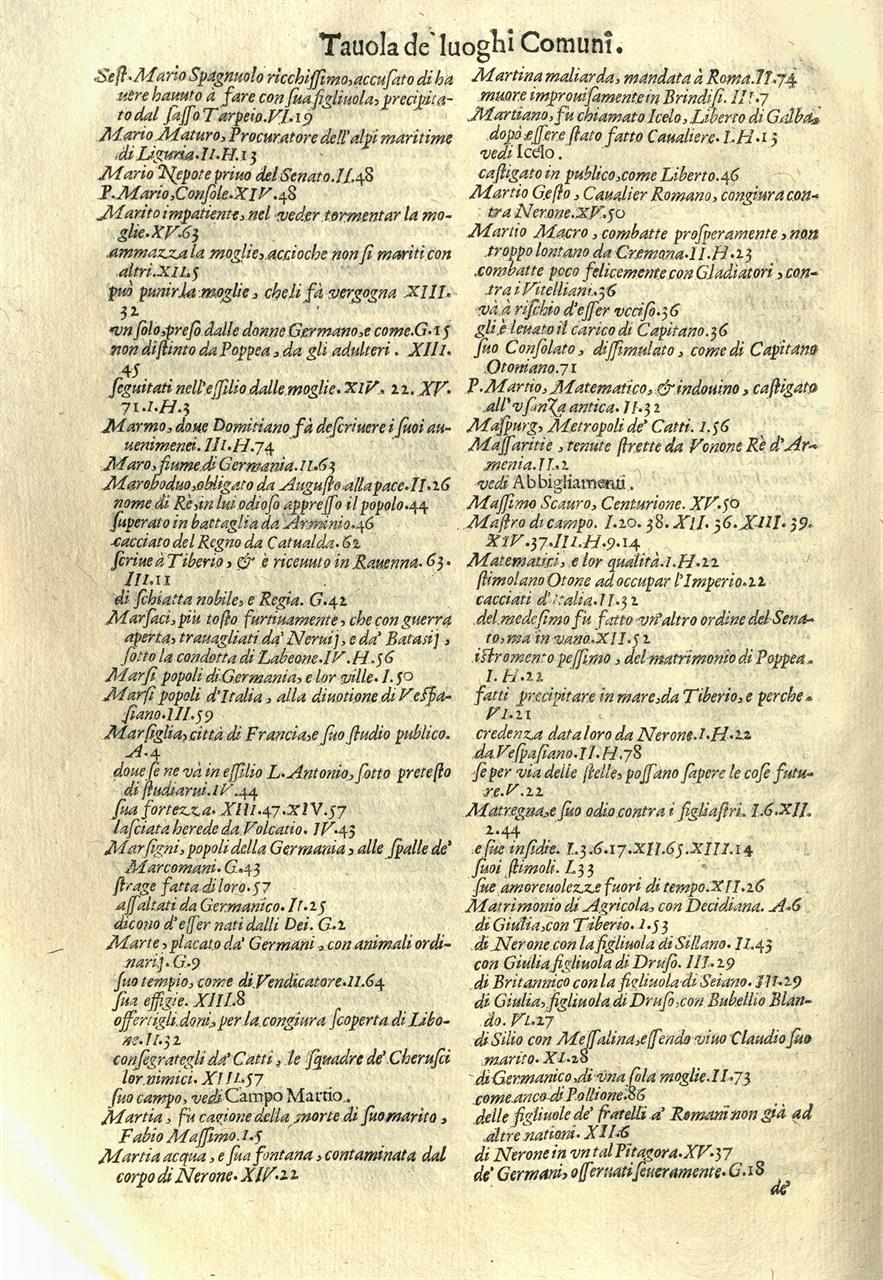 Tauola de' luoghi Comuni.
Sest. Mario Spagnuolo ricchissimo, accusato di ha
uere hauuto a fare con sua figliuola, precipita-
to dal sasso Tarpeio. VI.19
Mario Maturo, Procuratore dell'alpi maritime
di Liguria. II.H.13
Mario Nepote priuo del Senato. II.48
P. Mario, Console. XIV.48
Marito impatiente, nel veder tormentar la mo-
glie. XV.63
ammazza la moglie, accioche non si mariti con
altri. XII.5
può punir la moglie, che li fà vergogna XIII.
32
vn solo, preso dalle donne Germano, e come. G.15
non distinto da Poppea, da gli adulteri. XIII.
45
seguitati nell'essilio dalle moglie. XIV. 22. XV.
71. I.H.3
Marmo, doue Domitiano fà descriuere i suoi au-
uenimenei. III.H.74
Maro, fiume di Germania. II.63
Maroboduo, obligato da Augusto alla pace. II.26
nome di Rè, in lui odioso appresso il popolo. 44
superato in battaglia da Arminio. 46
cacciato del Regno da Catualda. 62
scriue à Tiberio, & è riceuuto in Rauenna. 63.
III.11
di schiatta nobile, e Regia. G.42
Marsaci, piu tosto furtiuamente, che con guerra
aperta, trauagliati da' Neruij, e da' Batasij,
sotto la condotta di Labeone. IV.H.56
Marsi popoli di Germania, e lor ville. I.50
Marsi popoli d'Italia, alla diuotione di Vespa-
siano. III.59
Marsiglia, città di Francia, e suo studio publico.
A.4
doue se ne và in essilio L. Antonio, sotto pretesto
di studiarui. IV.44
sua fortezza. XIII.47. XIV.57
lasciata herede da Volcatio. IV.43
Marsigni, popoli della Germania, alle spalle de'
Marcomani. G.43
strage fatta di loro. 57
assaltati da Germanico. II.25
dicono d'esser nati dalli Dei. G.2
Marte, placato da' Germani, con animali ordi-
narij. G.9
suo tempio, come di Vendicatore. II.64
sua effigie. XIII.8
offertigli doni, per la congiura scoperta di Libo-
ne. II.32
consegrategli da' Catti, le squadre de' Cherusci
lor nimici. XIII.57
suo campo, vedi Campo Martio.
Martia, fù cagione della morte di suo marito,
Fabio Massimo. I.5
Martia acqua, e sua fontana, contaminata dal
corpo di Nerone. XIV.22
Martina maliarda, mandata à Roma. II.74
muore improuisamente in Brindisi. III.7
Martiano, fu chiamato Icelo, Liberto di Galba,
dopò essere stato fatto Caualiere. I.H.13
vedi Icelo.
castigato in publico, come Liberto. 46
Martio Gesto, Caualier Romano, congiura con-
tra Nerone. XV.50
Martio Macro, combatte prosperamente, non
troppo lontano da Cremona. II.H.23
combatte poco felicemente con Gladiatori, con-
tra i Vitelliani. 36
và à rischio d'esser vcciso. 36
gli è leuato il carico di Capitano. 36
suo Consolato, dissimulato, come di Capitano
Otoniano. 71
P. Martio, Matematico, & indouino, castigato
all'vsanza antica. II.32
Maspurg, Metropoli de' Catti. I.56
Massaritie, tenute strette da Vonone Rè d'Ar-
menia. II.2
vedi Abbigliamenti.
Massimo Scauro, Centurione. XV.50
Mastro di campo. I.20. 38. XII. 36. XIII. 39.
XIV.37. III.H.9.14
Matematici, e lor qualità. I.H.22
stimolano Otone ad occupar l'Imperio. 22
cacciati d'Italia. II.32
del medesimo fu fatto vn'altro ordine del Sena-
to, ma in vano. XII.52
istromento pessimo, del matrimonio di Poppea.
I. H.22
fatti precipitare in mare, da Tiberio, e perche.
VI.21
credenza data loro da Nerone. I.H.22
da Vespasiano. II.H.78
se per via delle stelle, possano sapere le cose futu-
re. V.22
Matregna, e suo odio contra i figliastri. I.6. XII.
2.44
e sue insidie. I.3.6.17. XII.65. XIII.14
suoi stimoli. I.33
sue amoreuolezze fuori di tempo. XII.26
Matrimonio di Agricola, con Decidiana. A.6
di Giulia, con Tiberio. I.53
di Nerone con la figliuola di Sillano. II.43
con Giulia figliuola di Druso. III.29
di Britannico con la figliuola di Seiano. III.29
di Giulia, figliuola di Druso, con Bubellio Blan-
do. VI.27
di Silio con Messalina, essendo viuo Claudio suo
marito. XI.28
di Germanico, di vna sola moglie. II.73
come anco di Pollione. 86
delle figliuole de' fratelli a' Romani non già ad
altre nationi. XII.6
di Nerone in vn tal Pitagora. XV.37
de' Germani, osseruati seueramente. G.18
de'